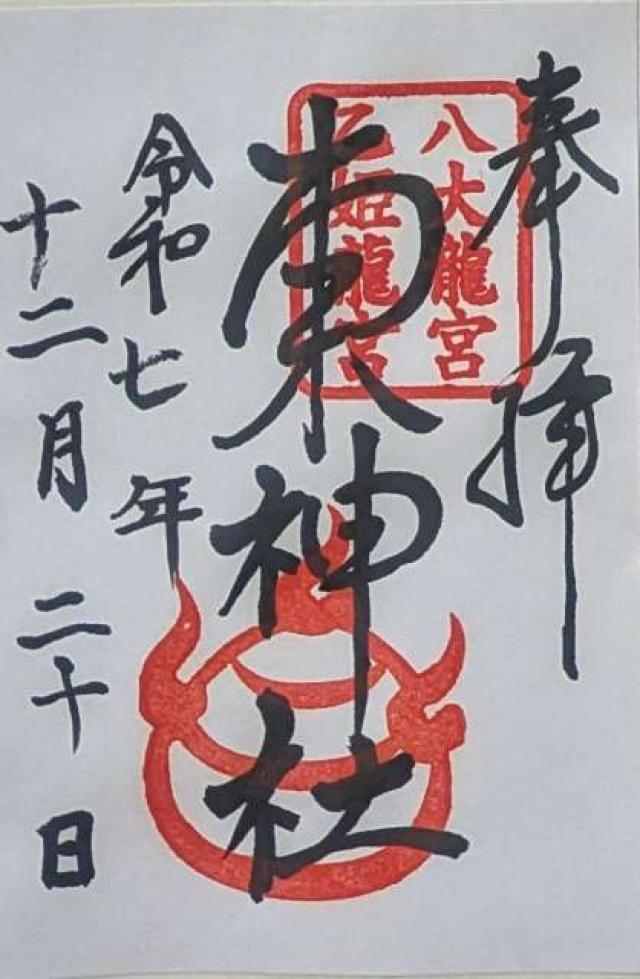 奉拝
八大龍宮
乙姫龍宮
東神社
令和七年
十二月二十日